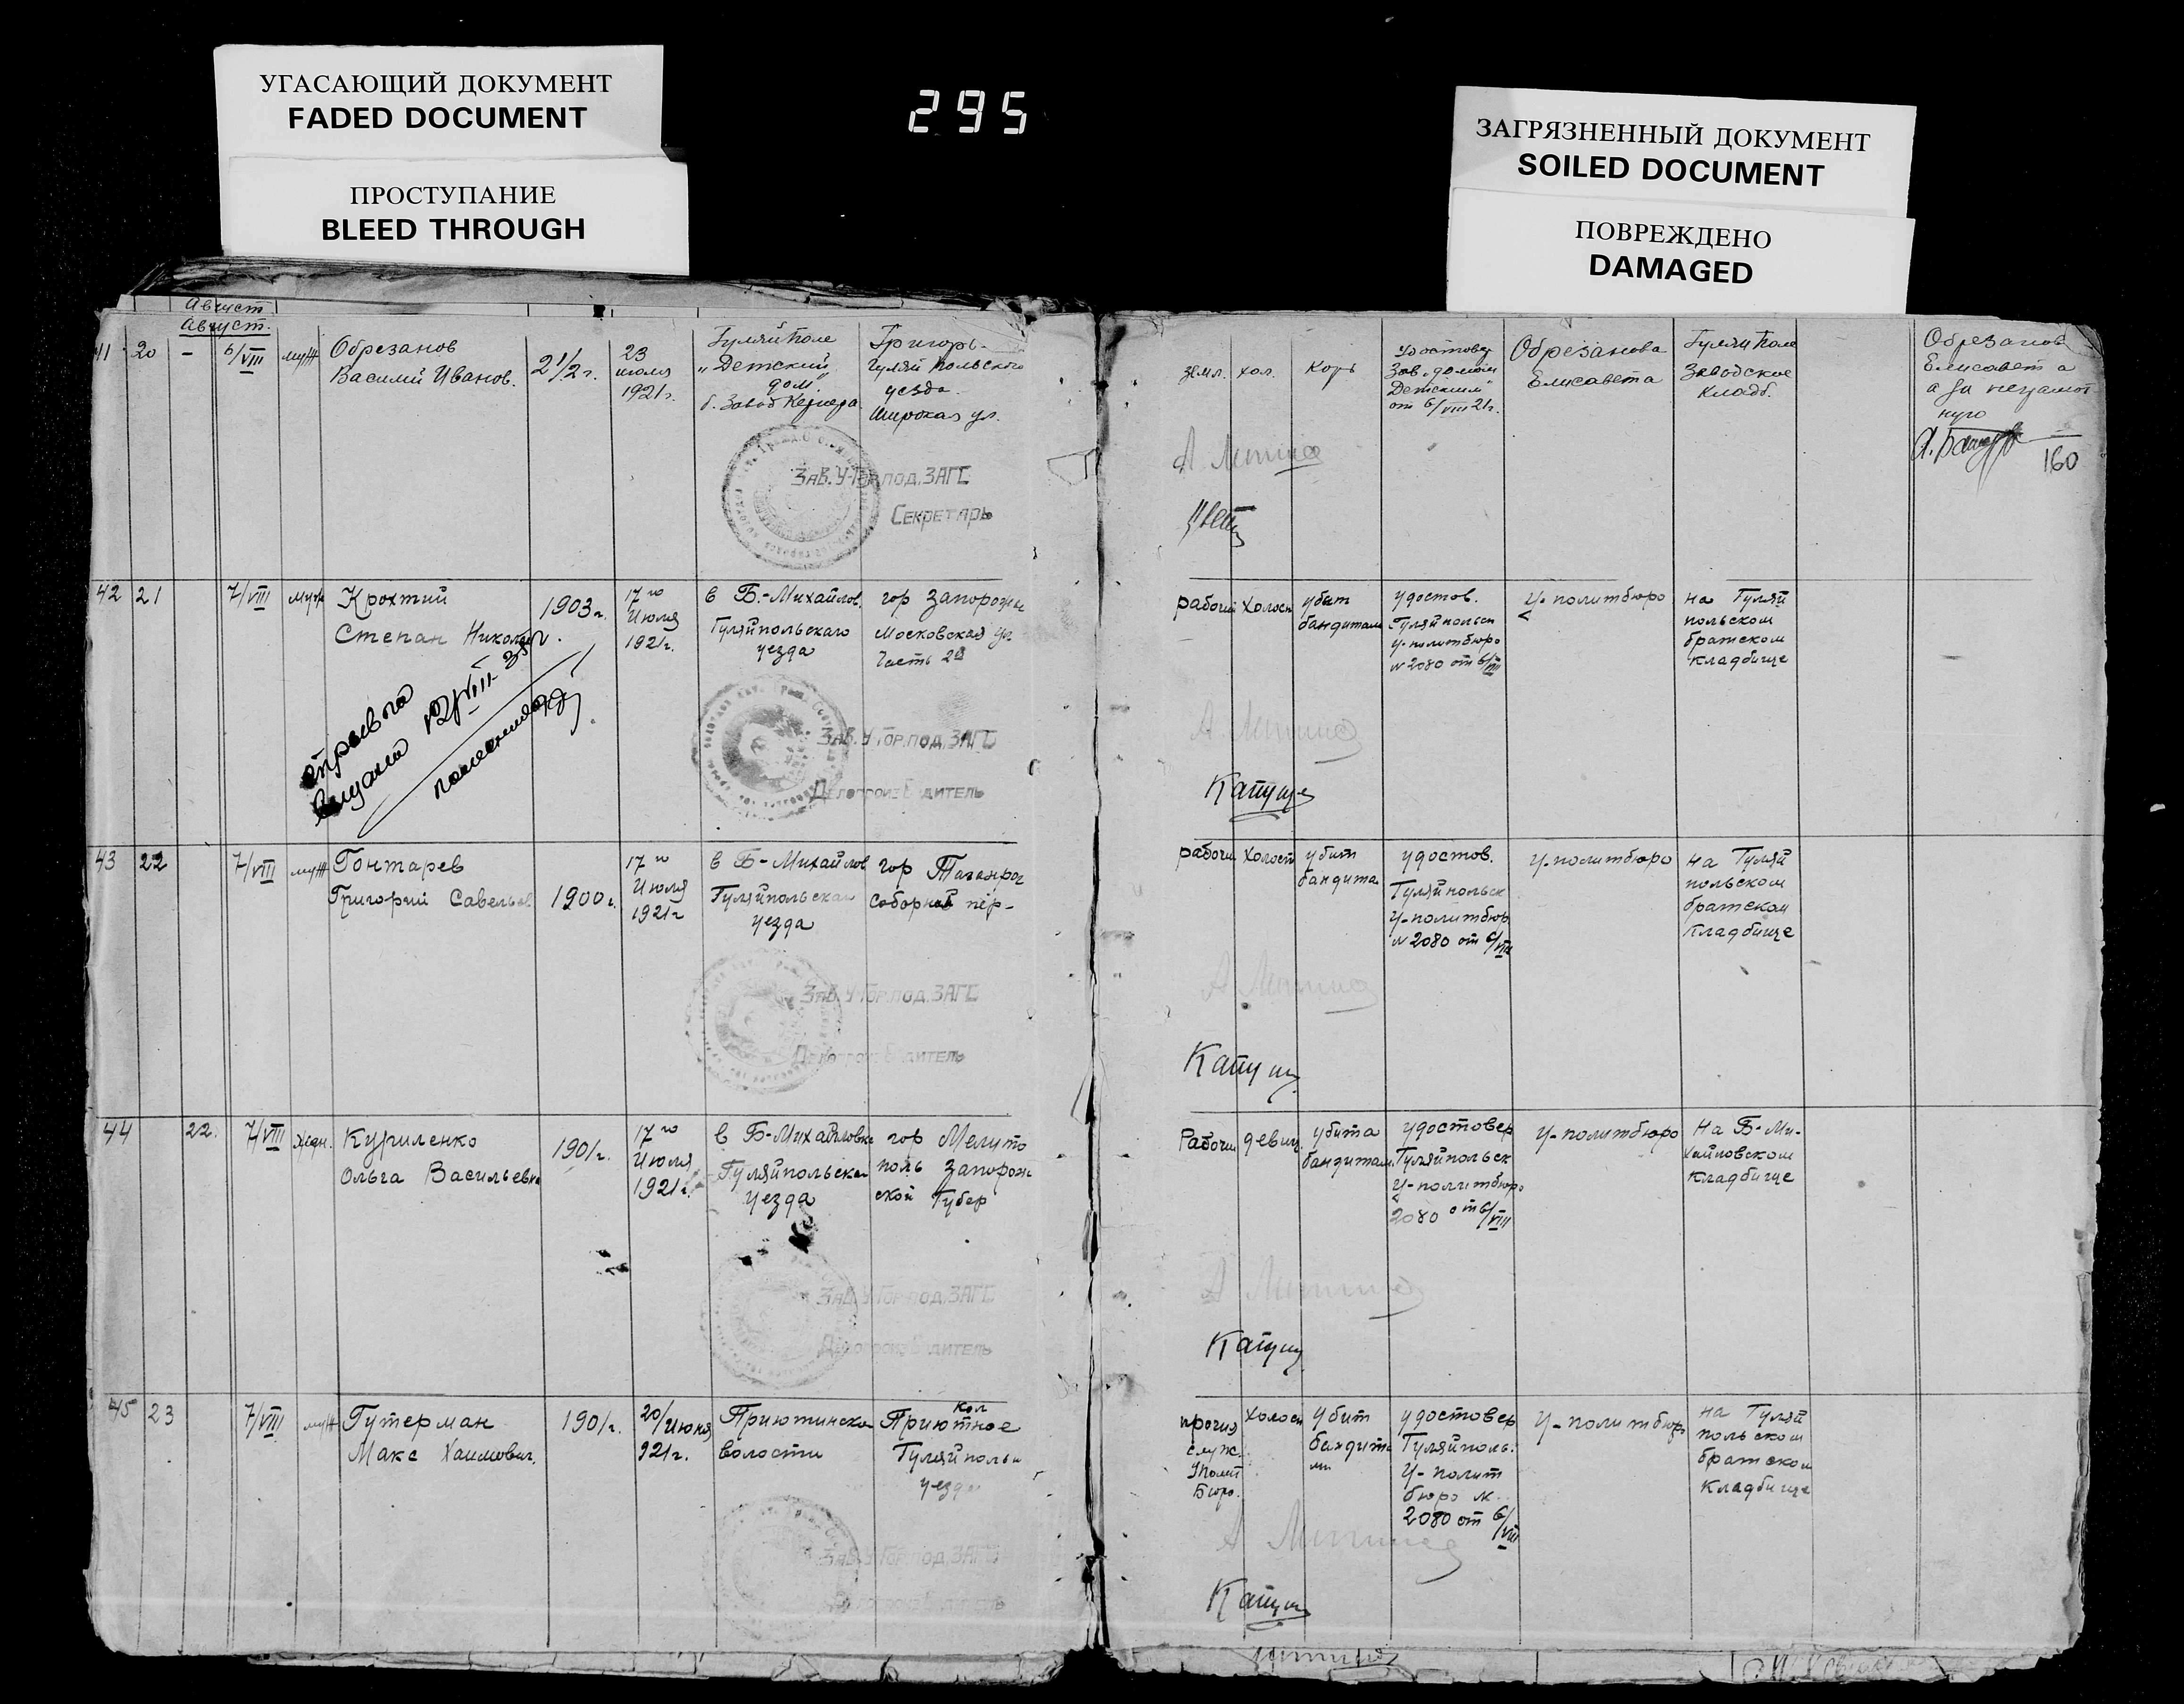 УГАСАЮЩИЙ ДОКУМЕНТ
FADED DOCUMENT
ПРОСТУПАНИЕ
BLEED THROUGH
295
ЗАГРЯЗНЕННЫЙ ДОКУМЕНТ
SOILED DOCUMENT
ПОВРЕЖДЕНО
DAMAGED
Август
Август.
41 20 - 6/VIII муж
Обрезанов
Василий Иванов.
2 1/2 г.
23
июля
1921 г.
Гуляй Поле
„Детский
дом"
б. Завод Кернера
Григорь-
Гуляй Польского
уезда.
Широкая ул.
земл. хол. Корь
удостовер
Зав. „домом
Детским"
от 6/VIII 21г.
Обрезанова
Елисавета
Гуляй Поле
Заводское
кладб.
Обрезанов
Елисавет а
а за неграмот
ную
160
Зав. У-Гор.под. ЗАГС
Секретарь
42 21 7/VIII муж
Крохтий
Степан Николаев.
1903 г.
17 го
Июля
1921 г.
в Б.-Михайлов.
Гуляйпольскаго
уезда
гор Запорожье
Московская ул
Часть 2
рабочий холост
убит
бандитами
удостов.
Гуляйпольск
У-политбюро
N 2080 от 6/VIII
У-политбюро
на Гуляй
польском
братском
кладбище
Зав. У-Гор.под. ЗАГС
Делопроизводитель
43 22 7/VIII муж
Гонтарев
Григорий Савельев
1900 г.
17 го
Июля
1921 г
в Б-Михайлов
Гуляйпольскаго
уезда
гор Таганрог
Соборный пер-
рабочий холост
убит
бандита
удостов.
Гуляйпольск
У-политбюр
N 2080 от 6/VIII
У-политбюро
на Гуляй
польском
братском
кладбище
Зав. У-Гор.под. ЗАГС
Делопроизводитель
44 22. 7/VIII жен.
Куриленко
Ольга Васильевна
1901 г.
17 го
Июля
1921 г.
в Б-Михайловке
Гуляйпольскаго
уезда
гор Мелито
поль Запорож
ской Губер
Рабочий девиц
убита
бандитами
удостовер
Гуляйпольск
У-политбюро
2080 от 6/VIII
У-политбюро
На Б-Ми-
хайловском
кладбище
Зав. У-Гор.под. ЗАГС
Делопроизводитель
45 23 7/VIII муж
Гутерман
Макс Хаимович.
1901 г.
20/Июня
921 г.
Приютинской
волости
Кол
Приютное
Гуляйпольск
уезда
прочия
служ.
Уполит
Бюро.
холост
убит
бандита
ми
удостовер
Гуляйполь.
У-полит
бюро N
2080 от 6/VIII
У-политбюро
на Гуляй
польском
братском
кладбище
Зав. У-Гор.под. ЗАГС